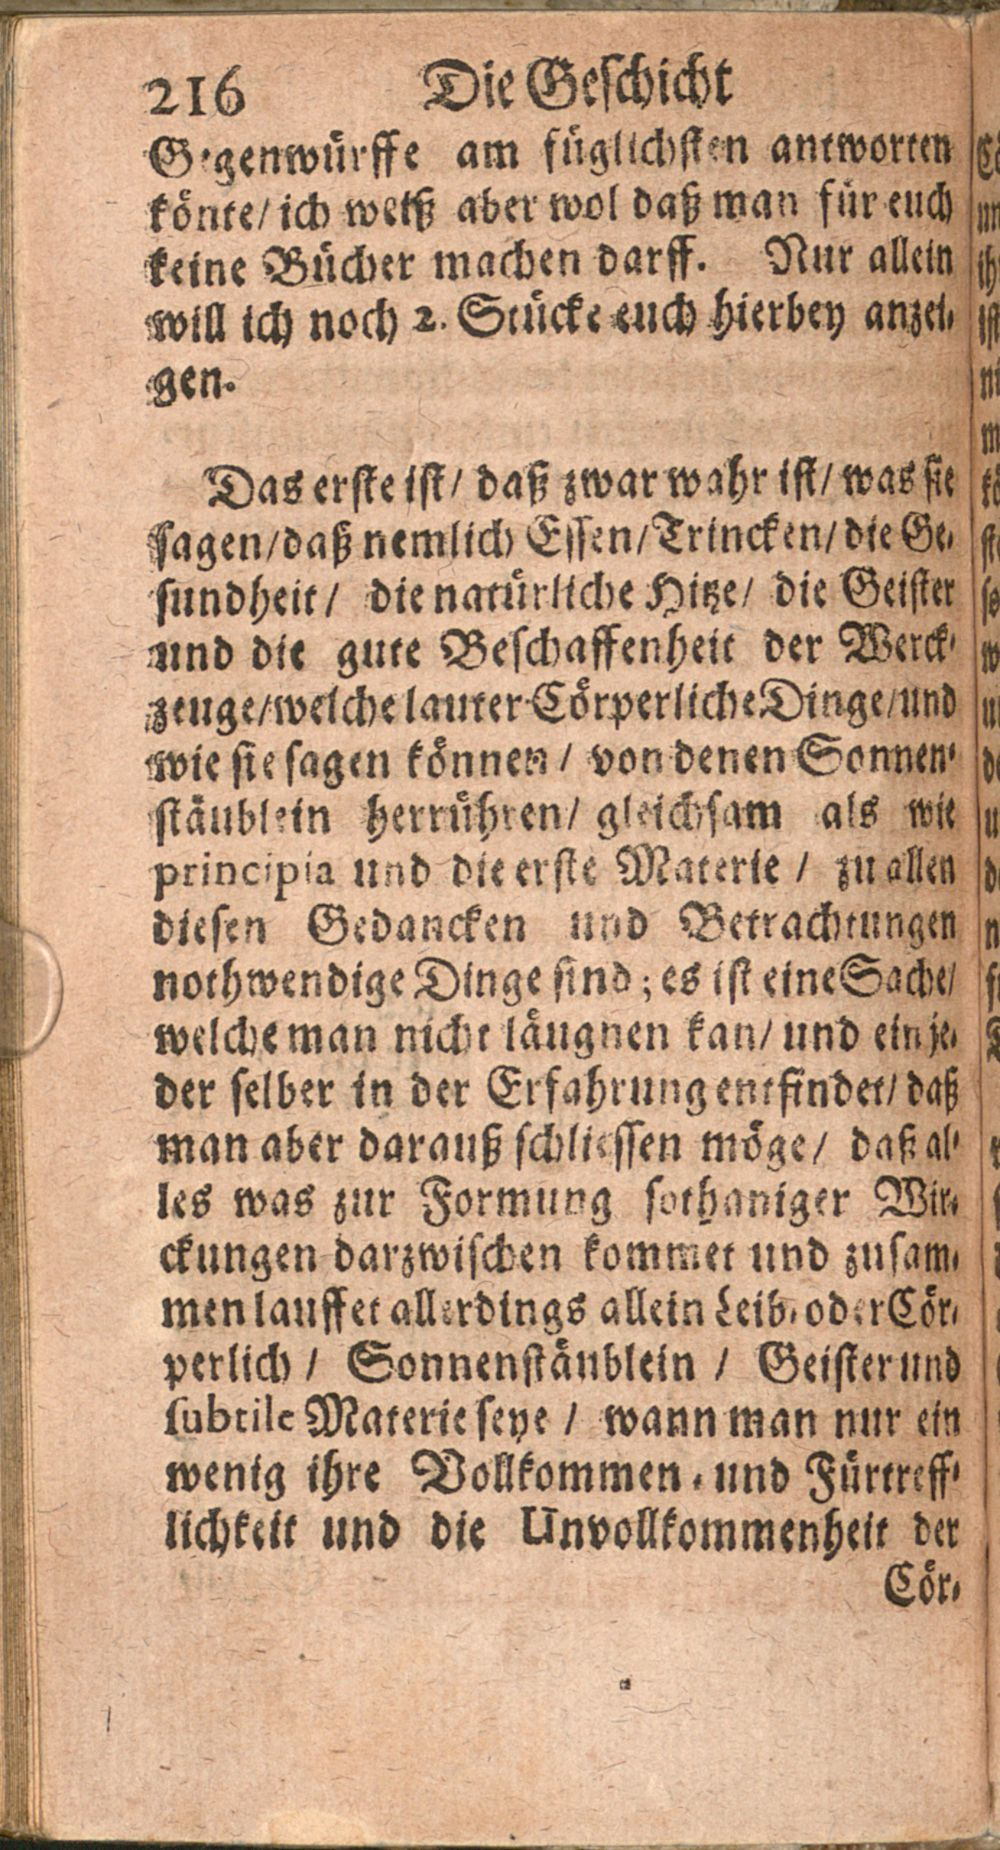 216 Die Geschicht
Gegenwürffe am füglichsten antworten
könte/ ich weiß aber wol daß man für euch
keine Bücher machen darff. Nur allein
will ich noch 2. Stücke euch hierbey anzei-
gen.
Das erste ist/ daß zwar wahr ist/ was sie
sagen/ daß nemlich Essen/ Trincken/ die Ge-
sundheit/ die natürliche Hitze/ die Geister
und die gute Beschaffenheit der Werck-
zeuge/ welche lauter Cörperliche Dinge/ und
wie sie sagen können/ von denen Sonnen-
stäublein herrühren/ gleichsam als wie
principia und die erste Materie / zu allen
diesen Gedancken und Betrachtungen
nothwendige Dinge sind; es ist eine Sache/
welche man nicht läugnen kan/ und ein je-
der selber in der Erfahrung entfindet/ daß
man aber darauß schliessen möge/ daß al-
les was zur Formung sothaniger Wir-
ckungen darzwischen kommet und zusam-
men lauffet allerdings allein Leib- oder Cör-
perlich / Sonnenstäublein / Geister und
subtile Materie seye / wann man nur ein
wenig ihre Vollkommen- und Fürtreff-
lichkeit und die Unvollkommenheit der
Cör-